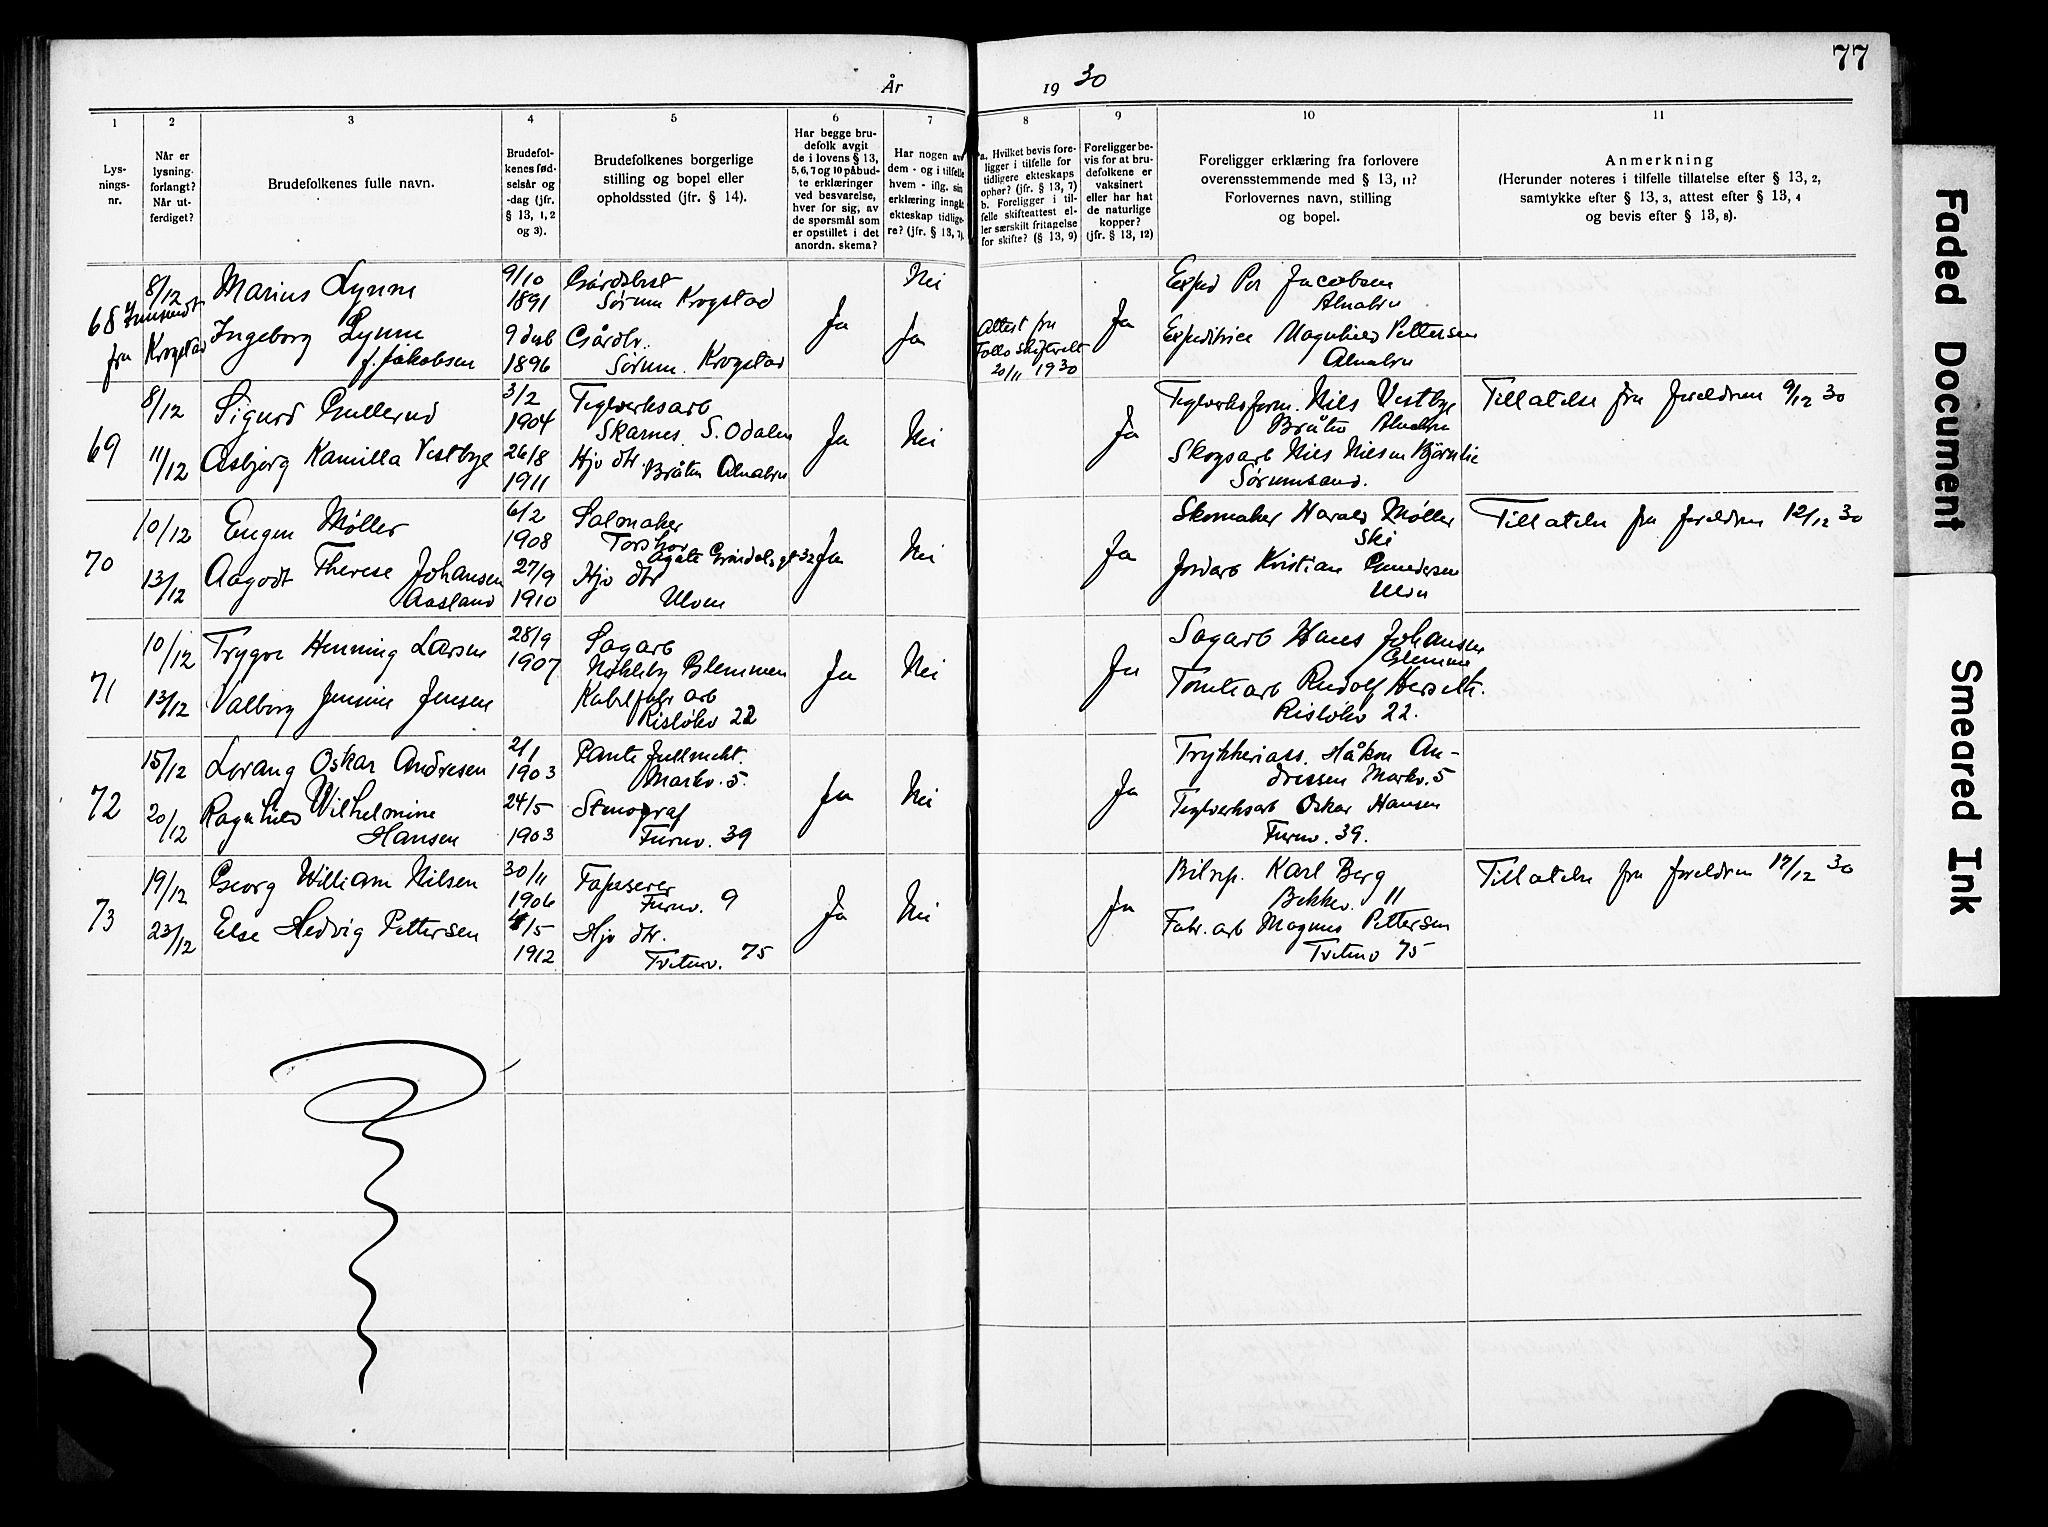 77
År 19 30
1
Lys-
nings-
nr.
2
Når er
lysning
forlangt?
Når ut-
ferdiget?
3
Brudefolkenes fulle navn.
4
Brudefol-
kenes fød-
selsår og
-dag (jfr.
§ 13, 1, 2
og 3).
5
Brudefolkenes borgerlige
stilling og bopel eller
opholdssted (jfr. § 14).
6
Har begge bru-
defolk avgit
de i lovens § 13,
5, 6, 7 og 10 påbud-
te erklæringer
ved besvarelse,
hver for sig, av
de spørsmål som
er opstillet i det
anordn. skema?
7
Har nogen av
dem - og i tilfelle
hvem - iflg. sin
erklæring inngåt
ekteskap tidlige-
re? (jfr. § 13, 7).
8
a. Hvilket bevis fore-
ligger i tilfelle for
tidligere ekteskaps
ophør? (jfr. § 13, 7)
b. Foreligger i til-
felle skifteattest el-
ler særskilt fritagelse
for skifte? (§ 13, 9)
9
Foreligger be-
vis for at bru-
defolkene er
vaksinert
eller har hat
de naturlige
kopper?
(jfr. § 13, 12)
10
Foreligger erklæring fra forlovere
overensstemmende med § 13, 11?
Forlovernes navn, stilling
og bopel.
11
Anmerkning
(Herunder noteres i tilfelle tillatelse efter § 13, 2,
samtykke efter § 13, 3, attest efter § 13, 4
og bevis efter § 13, 8).
68
8/12
Innsendt
fra Krogstad
Marius Lynne
Ingeborg Lynne
f. Jakobsen
9/10
1891
9 feb
1896
Gårdbest
Sørum Krogstad
Gårdbr.
Sørum. Krogstad
Ja
Nei
Ja
Attest fra
Follo Skifterett
20/11 1930
Ja
Exped Per Jacobsen
Alnabru
Expeditrice Magnhild Pettersen
Alnabru
69
8/12
11/12
Sigurd Gullerud
Asbjørg Kamilla Vestbye
3/2
1904
26/8
1911
Teglverksarb
Skarnes. S. Odalen
Hjv dtr.
Bråten Alnabru
Ja
Nei
Ja
Teglverksform. Nils Vestbye
Bråten Alnabru
Skogsarb Nils Nilsen Bjørnlie
Sørumsand.
Tillatelse fra foreldrene 9/12 30
70
10/12
13/12
Eugen Møller
Aagodt Therese Johansen
Aasland
6/2
1908
27/9
1910
Salmaker
Torshov
Agate Grøndals gt 32
Hjv dtr
Ulven
Ja
Nei
Ja
Skomaker Harald Møller
Ski
Jordarb Kristian Gundersen
Ulven
Tillatelse fra foreldrene 12/12 30
71
10/12
13/12
Trygve Henning Larsen
Valborg Jensine Jensen
28/9
1907
Sagarb
Nøkleby Glemmen
Kabelfabr arb
Risløkv 22
Ja
Nei
Ja
Sagarb Hans Johansen
Glemmen
Tomtearb Rudolf Herseth.
Risløkv 22.
72
15/12
20/12
Lorang Oskar Andresen
Ragnhild Wilhelmine
Hansen
2/1
1903
24/5
1903
Pante fullmekt.
Markv. 5.
Stenograf
Furuv. 39
Ja
Nei
Ja
Trykkeriass. Håkon An-
dressen Markv. 5
Teglverksarb Oskar Hansen
Furuv. 39.
73
19/12
23/12
Georg William Nilsen
Else Hedvig Pettersen
30/11
1906
4/5
1912
Tapserer
Furuv. 9
Hjv dtr.
Tvetenv. 75
Ja
Nei
Ja
Bilrep. Karl Berg
Bekkev. 11
Fabr. arb Magnus Pettersen
Tvetenv 75
Tillatelse fra foreldrene 17/12 30
Faded Document
Smeared Ink